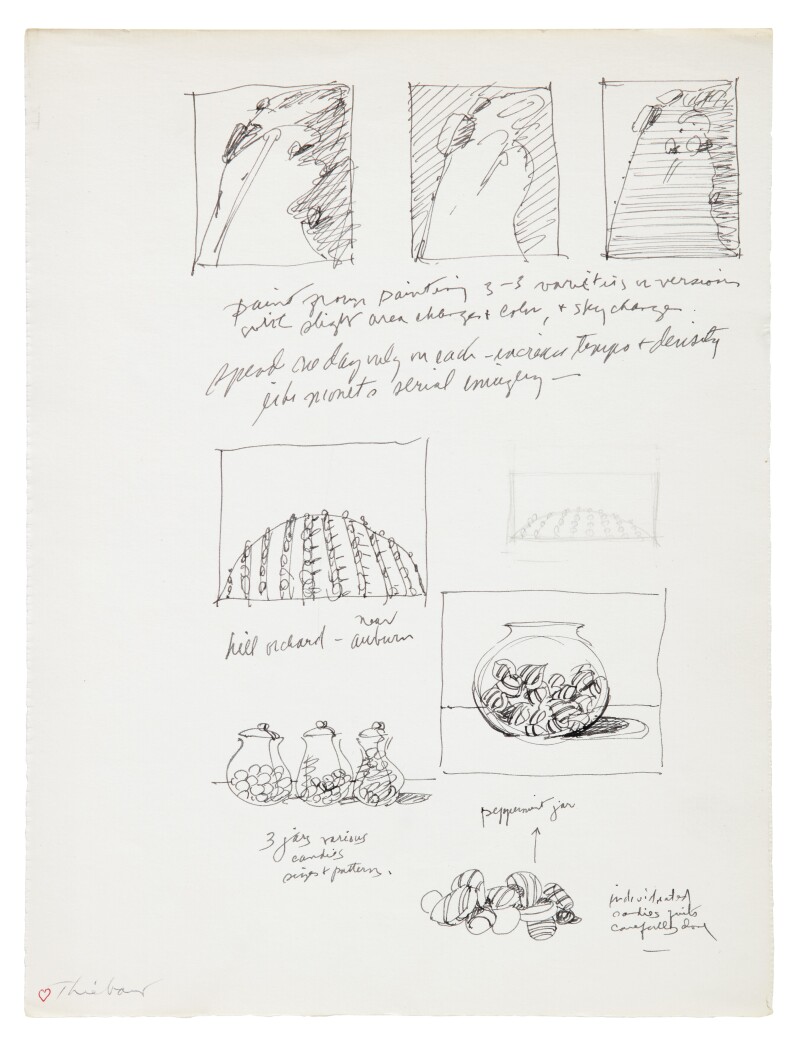 paint from painting 3-3 varieties or versions
with slight area changes + color, + sky changes.
spend one day only on each - increase tempo + density
like monets serial imagery —
near
hill orchard - auburn
peppermint jar
3 jars various
candies
sizes + patterns.
individuated
candies quite
carefully done
Thiebaud